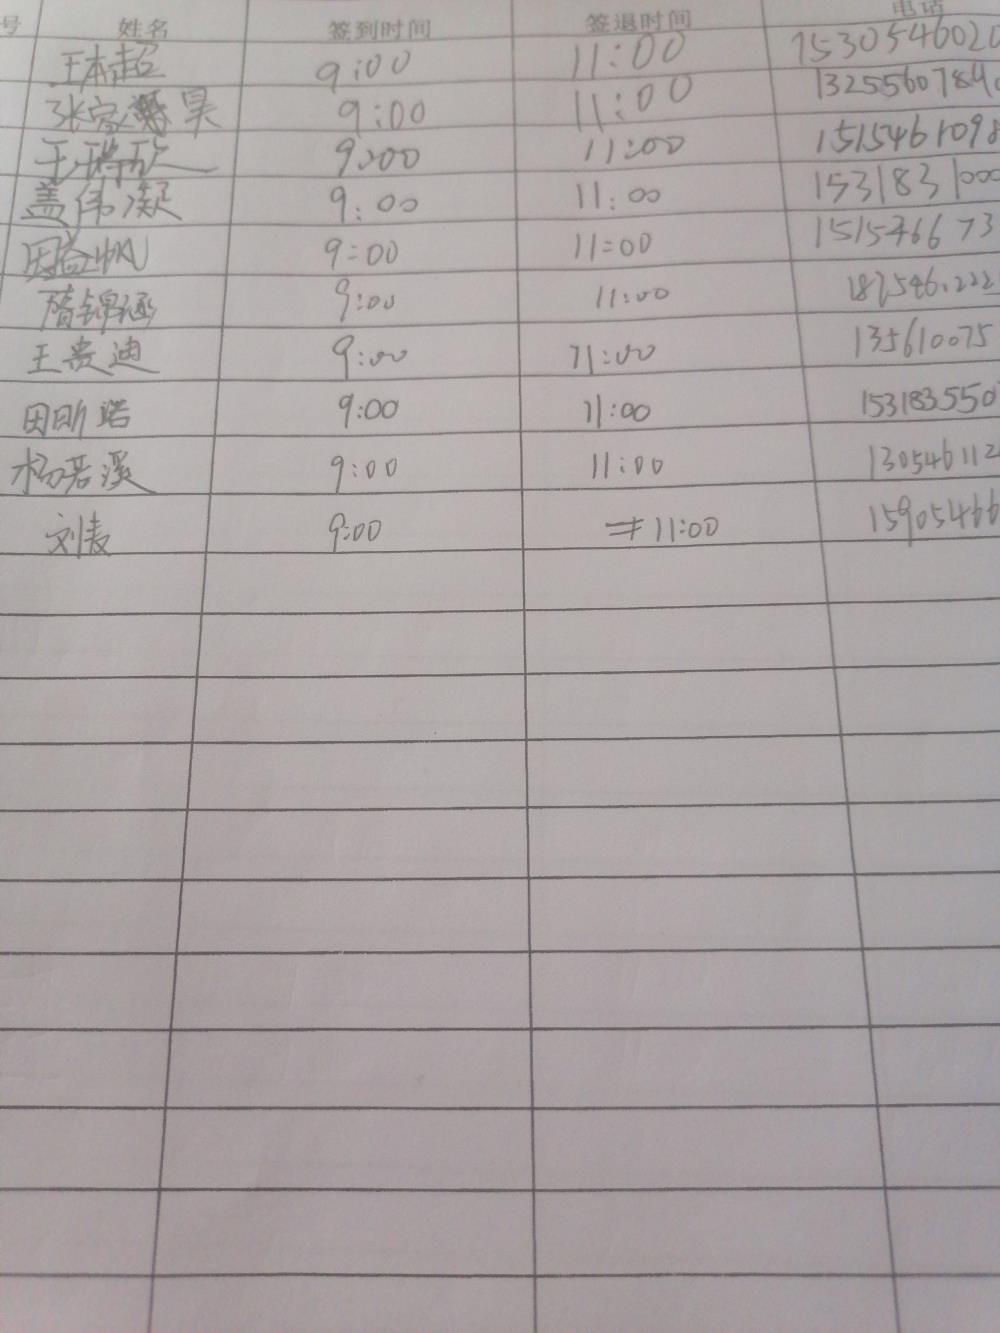 号 姓名 签到时间 签退时间 电话
王本超 9:00 11:00 1530546020
张家 昊 9:00 11:00 1325560784
9:00 11:00 1515461098
盖伟凝 9:00 11:00 1531831000
9:00 11:00 151546673
隋锦涵 9:00 11:00
王贵迪 9:00 11:00 135610075
田昕诺 9:00 11:00 153183550
杨若溪 9:00 11:00 130546112
刘 9:00 11:00 15905466